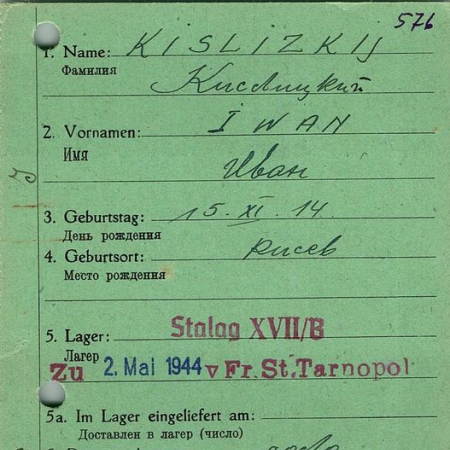 576
1. Name: KISLIZKIJ
Фамилия Кислицкий
2. Vornamen: IWAN
Имя Иван
3. Geburtstag: 15. XI. 14.
День рождения
4. Geburtsort:
Место рождения
5. Lager: Stalag XVII/B
Лагер
Zu 2. Mai 1944 v Fr. St. Tarnopol
5a. Im Lager eingeliefert am:
Доставлен в лагер (число)